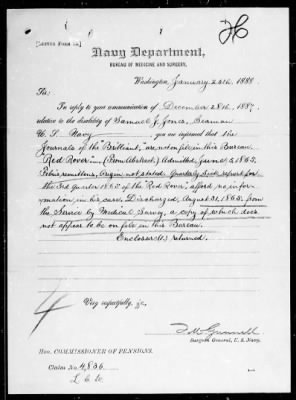 [LETTER FORM 1a.]
Navy Department,
BUREAU OF MEDICINE AND SURGERY,
Washington, January 25th, 1888
Sir:
In reply to your communication of December 28th, 1887,
relative to the disability of Samuel J. Jones, Seaman
U. S. Navy you are informed that the
Journals of the Brilliant, are not on file in this Bureau.
"Red Rover" (Abstract) Admitted June 5, 1865.
Febris remittens, Origin not stated. Quarterly Sick report for
the 3rd quarter 1865 of the "Red Rover", afford no infor-
mation in his case. Discharged, August 31, 1865, from
the Service by Medical Survey, a copy of which does
not appear to be on file in this Bureau.
Enclosure(s) returned.
Very respectfully, &c.
Surgeon General, U. S. Navy.
Hon. COMMISSIONER OF PENSIONS.
Claim No. 4,836